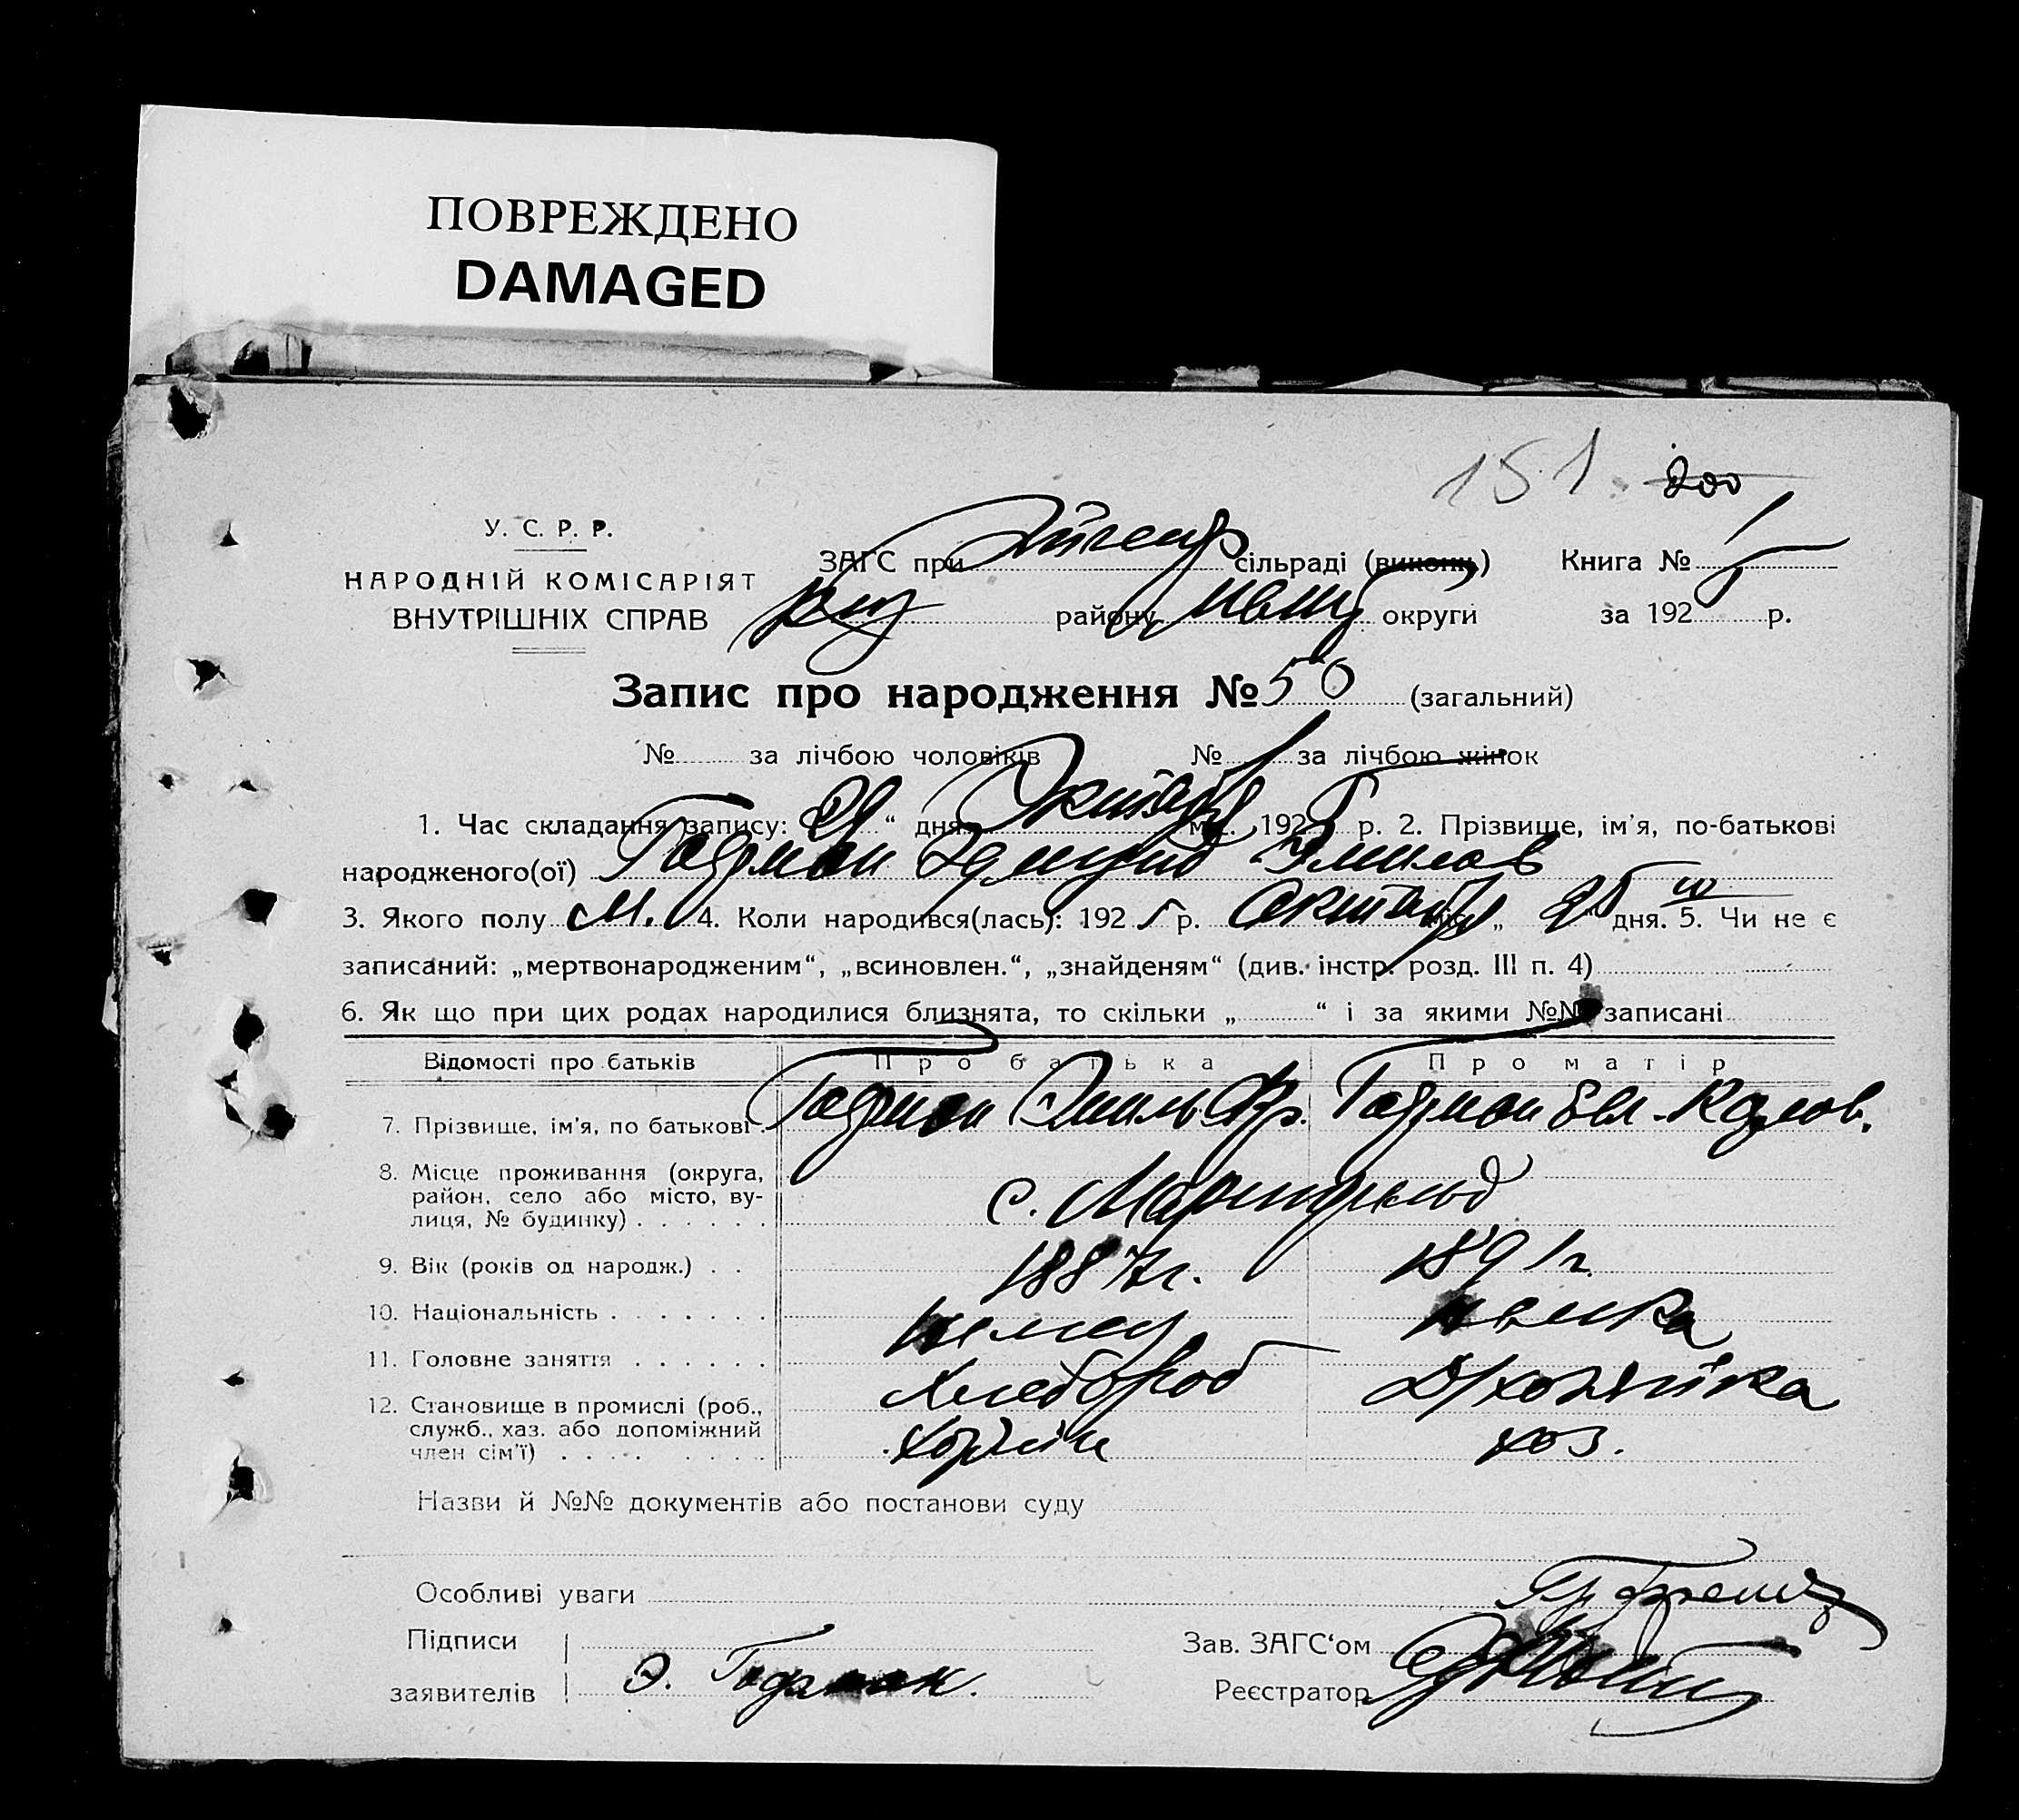 ПОВРЕЖДЕНО
DAMAGED
151. 200
У. С. Р. Р.
НАРОДНІЙ КОМІСАРІЯТ
ВНУТРІШНІХ СПРАВ
ЗАГС при сільраді (виконк.) Книга №
району округи за 192 р.
Запис про народження № 50 (загальний)
№ за лічбою чоловіків № за лічбою жінок
1. Час складання запису: 29 “ дня Октября міс. 1925 р. 2. Прізвище, ім'я, по-батькові
народженого(ої) Эдмунд Эмилов
3. Якого полу М. 4. Коли народився(лась): 1925 р. Октября міс. „ 25 го дня. 5. Чи не є
записаний: „мертвонародженим“, „всиновлен.“, „знайденям“ (див. інстр. розд. III п. 4)
6. Як що при цих родах народилися близнята, то скільки „ “ і за якими №№ записані
Відомості про батьків Про батька Про матір
7. Прізвище, ім'я, по батькові Эмиль Фр.
8. Місце проживання (округа,
район, село або місто, ву-
лиця, № будинку) с. Мариенфельд
9. Вік (років од народж.) 1887 г. 1891 г.
10. Національність немец немка
11. Головне заняття Хлебороб Д/хозяйка
12. Становище в промислі (роб.,
служб., хаз. або допоміжний
член сім'ї) хозяин хоз.
Назви й №№ документів або постанови суду
Особливі уваги
Підписи
заявителів Э.
Зав. ЗАГС‘ом
Реєстратор